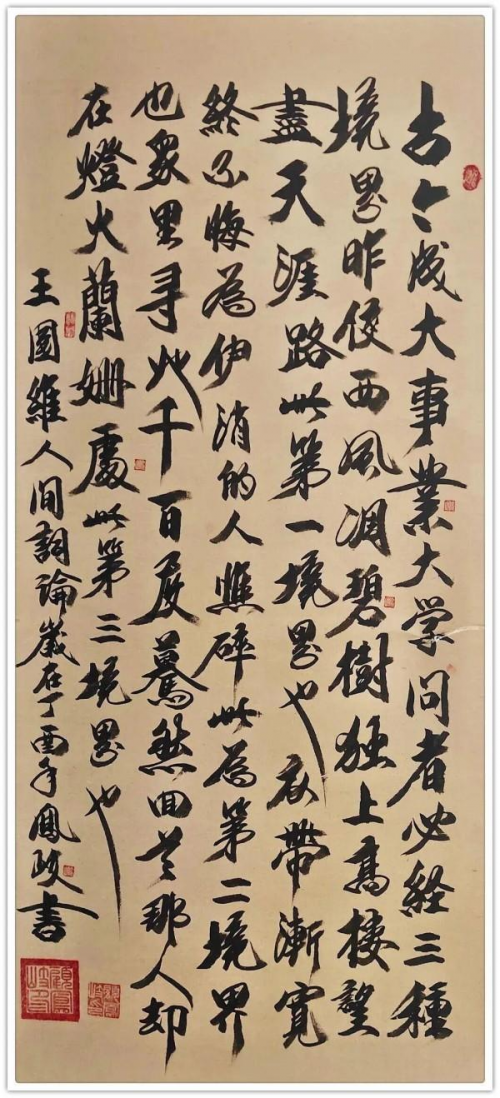 古今成大事業大学问者必经三種
境界昨夜西风凋碧樹独上高楼望
盡天涯路此第一境界也衣帶漸寬
終不悔為伊消的人憔碎此為第二境界
也衆里寻他千百度驀然回首那人却
在燈火蘭姗處此第三境界也
王國維人间詞論歲在丁酉年鳳岐書